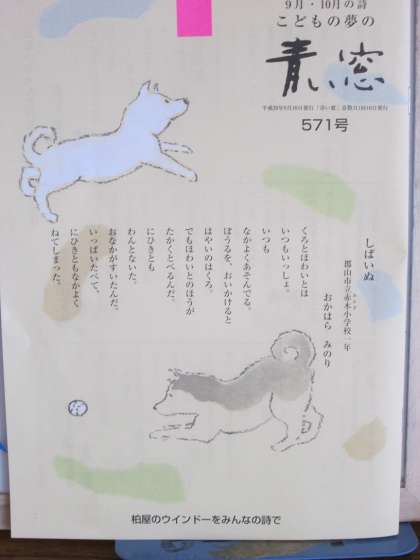 9月・10月の詩
こどもの夢の
青い窓
571号
しばいぬ
郡山市立赤木小学校一年
おかはら みのり
くろとほわいとは
いつもいっしょ。
いつも
なかよくあそんでる。
ぼうるを、おいかけると
はやいのはくろ。
でもほわいとのほうが
たかくとべるんだ。
にひきとも
わんとないた。
おなかがすいたんだ。
いっぱいたべて、
にひきともなかよく
ねてしまった。
柏屋のウインドーをみんなの詩で